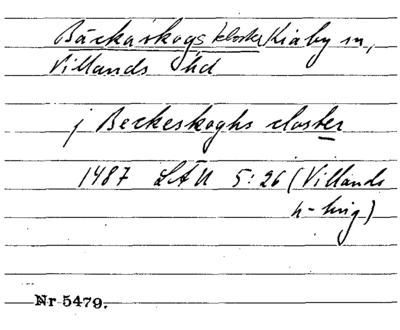 Bäckaskogs kloster Kiaby sn,
Villands hd
j Beckeskoghs closter
1487 LÄU 5:26 (Villands
h-ting)
Nr 5479.